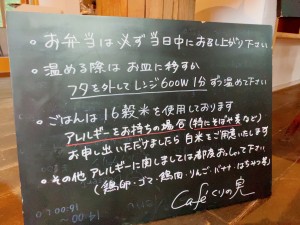 。お弁当は必ず当日中にお召し上がり下さい
。温める際は お皿に移すか
フタを外してレンジ600W 1分ずつ温めて下さい
。ごはんは16穀米を使用しております
アレルギーをお持ちの場合(特にそばや麦など)
お申し出いただけましたら白米をご用意いたします
。その他アレルギーに関しましては都度おっしゃって下さい
(鶏卵・ゴマ・鶏肉・りんご・バナナ・はちみつ等)
Café くりの里